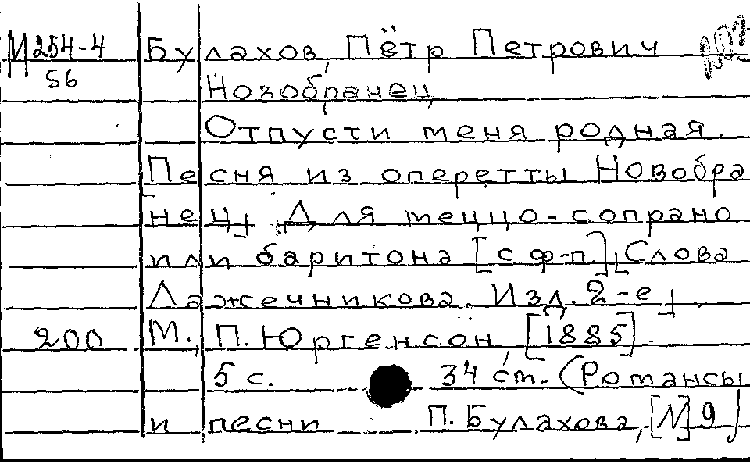 М 254-4 Булахов, Пётр Петрович
56
Новобранец
Отпусти меня родная.
Песня из оперетты Новобра
нец. Для меццо-сопрано
или баритона [с ф-п.] Слова
Лажечникова. Изд. 2-е.
200 М., П. Юргенсон, [1885]
5 с. 34 см. (Романсы
и песни П. Булахова, [N] 9)